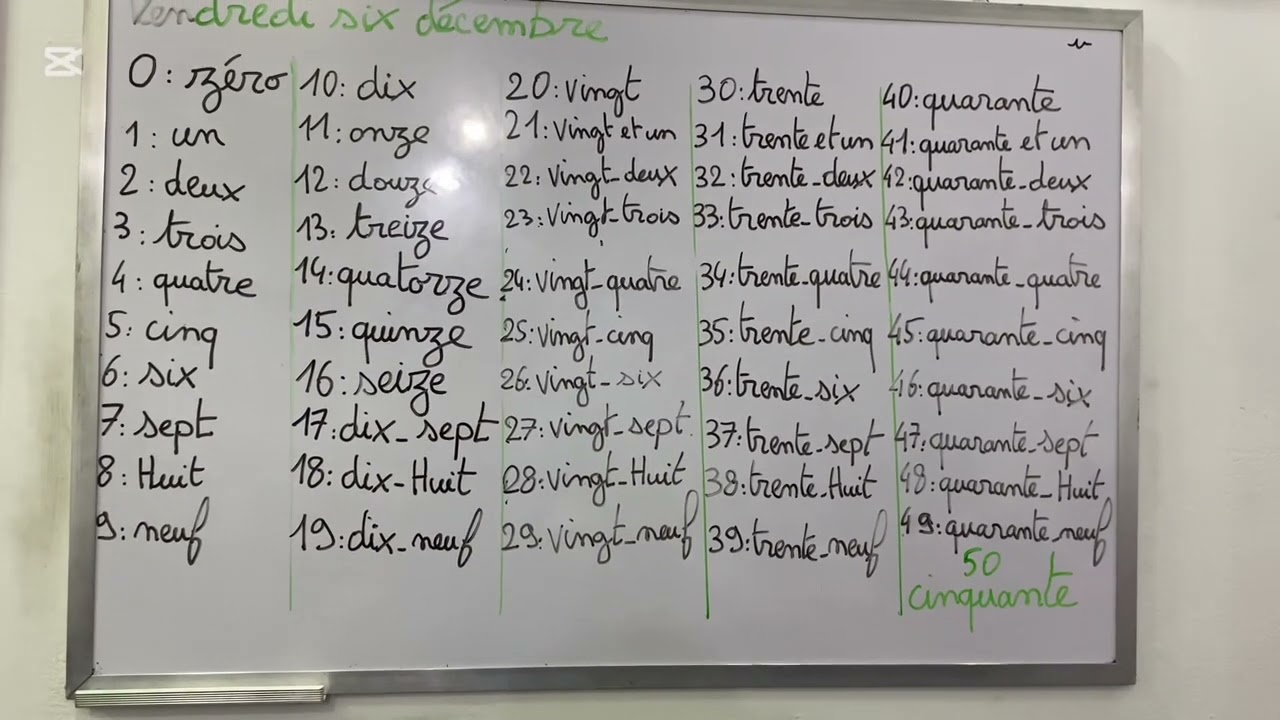 Vendredi six décembre
0: zéro
1: un
2: deux
3: trois
4: quatre
5: cinq
6: six
7: sept
8: Huit
9: neuf
10: dix
11: onze
12: douze
13: treize
14: quatorze
15: quinze
16: seize
17: dix-sept
18: dix-Huit
19: dix-neuf
20: vingt
21: vingt et un
22: vingt-deux
23: vingt-trois
24: vingt-quatre
25: vingt-cinq
26: vingt-six
27: vingt-sept
28: vingt-Huit
29: vingt-neuf
30: trente
31: trente et un
32: trente-deux
33: trente-trois
34: trente-quatre
35: trente-cinq
36: trente-six
37: trente-sept
38: trente-Huit
39: trente-neuf
40: quarante
41: quarante et un
42: quarante-deux
43: quarante-trois
44: quarante-quatre
45: quarante-cinq
46: quarante-six
47: quarante-sept
48: quarante-Huit
49: quarante-neuf
50
cinquante